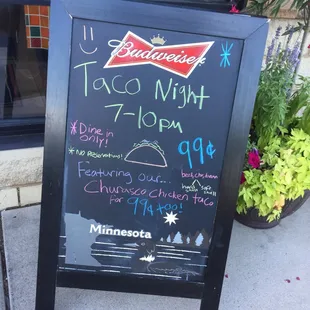 Budweiser
Taco Night
7-10pm
*Dine in
only!
*No Reservations!
99¢
beef, chicken
hard soft
shell
Featuring our...
Churasco Chicken taco
for 99¢ too!
Minnesota